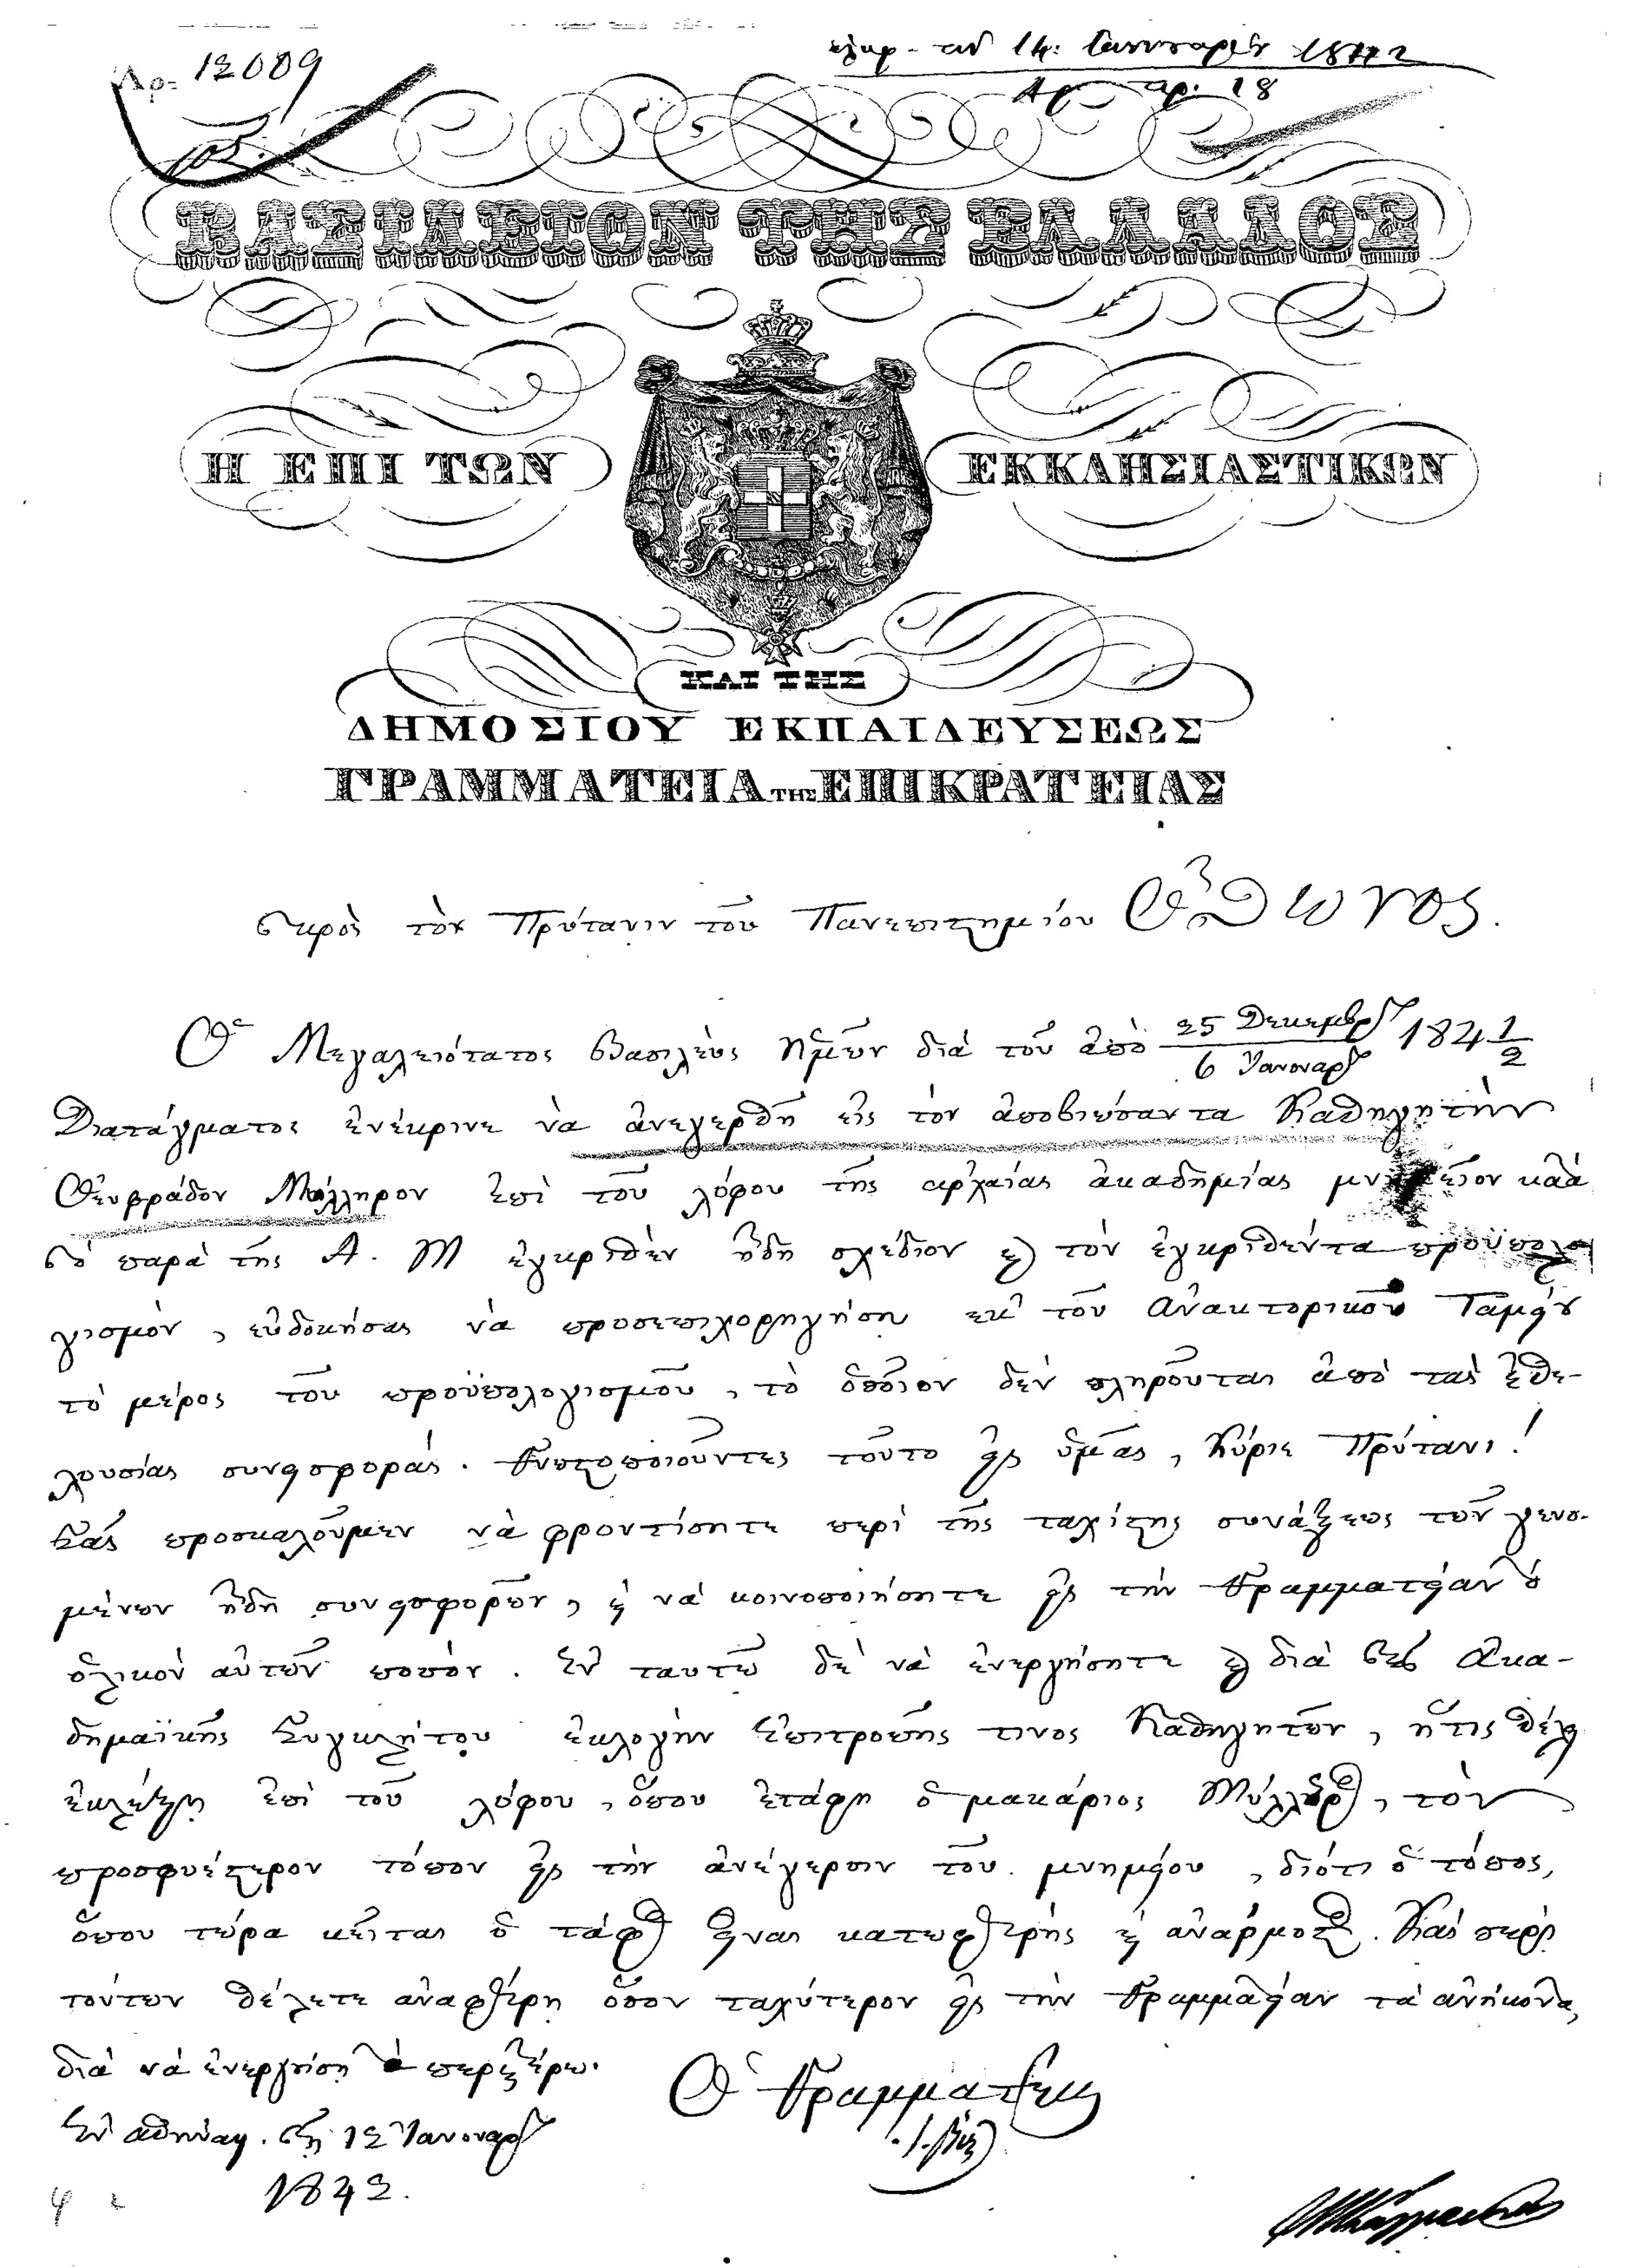 Αρ. 12009
ελήφ. τὴν 14. Ἰαννουαρίου 1842
Αρ. πρ. 18
105.
ΒΑΣΙΛΕΙΟΝ ΤΗΣ ΕΛΛΑΔΟΣ
Η ΕΠΙ ΤΩΝ ΕΚΚΛΗΣΙΑΣΤΙΚΩΝ
ΚΑΙ ΤΗΣ
ΔΗΜΟΣΙΟΥ ΕΚΠΑΙΔΕΥΣΕΩΣ
ΓΡΑΜΜΑΤΕΙΑ ΤΗΣ ΕΠΙΚΡΑΤΕΙΑΣ
πρὸς τὸν Πρύτανιν τοῦ Πανεπιστημίου Ὄθωνος.
Ὁ Μεγαλειότατος Βασιλεὺς ἡμῶν διὰ τοῦ ἀπὸ 25 Δεκεμβρίου / 6 Ἰανουαρίου 184 1/2
Διατάγματος ἐνέκρινε νὰ ἀνεγερθῇ εἰς τὸν ἀποβιώσαντα Καθηγητὴν
Ὀδυφράδον Μύλληρον ἐπὶ τοῦ λόφου τῆς ἀρχαίας ἀκαδημίας μνημεῖον κατὰ
τὸ παρὰ τῆς Α. Μ ἐγκριθὲν ἤδη σχέδιον καὶ τὸν ἐγκριθέντα προϋπολο
γισμὸν, εὐδοκήσας νὰ προσεπιχορηγήσῃ ἐκ τοῦ Ἀνακτορικοῦ Ταμείου
τὸ μέρος τοῦ προϋπολογισμοῦ, τὸ ὁποῖον δὲν πληροῦται ἀπὸ τὰς ἐθε-
λουσίας συνεισφοράς. Γνωστοποιοῦντες τοῦτο εἰς ὑμᾶς, Κύριε Πρύτανι!
Σᾶς προσκαλοῦμεν νὰ φροντίσητε περὶ τῆς ταχίστης συνάξεως τῶν γενο-
μένων ἤδη συνεισφορῶν, καὶ νὰ κοινοποιήσητε εἰς τὴν Γραμματείαν τὸ
ὁλικὸν αὐτῶν ποσὸν. Ἐν ταυτῷ δὲ νὰ ἐνεργήσητε καὶ διὰ τῆς Ἀκα-
δημαϊκῆς Συγκλήτου ἐκλογὴν Ἐπιτροπῆς τινος Καθηγητῶν, ἥτις θέλει
ἐκλέξῃ ἐπὶ τοῦ λόφου, ὅπου ἐτάφη ὁ μακάριος Μύλλερος, τὸν
προσφυέστερον τόπον εἰς τὴν ἀνέγερσιν τοῦ μνημείου, διότι ὁ τόπος,
ὅπου τώρα κεῖται ὁ τάφος εἶναι κατωφερὴς καὶ ἀνάρμοστος. Καὶ περὶ
τούτων θέλετε ἀναφέρῃ ὅσον ταχύτερον εἰς τὴν Γραμματείαν τὰ ἀνήκοντα,
διὰ νὰ ἐνεργήσῃ τὰ περαιτέρω.
Ἐν Ἀθήναις. τῇ 12 Ἰανουαρίου
1842.
Ὁ Γραμματεὺς